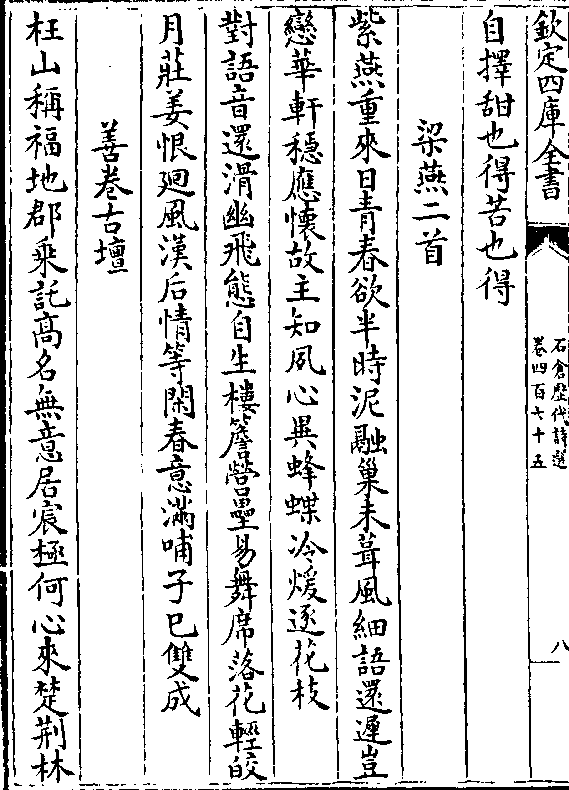 欽定四庫全書
石倉歷代詩選
卷四百七十五
八
自擇甜也得苦也得
梁燕二首
紫燕重來日青春欲半時泥融巢未葺風細語還遲豈
戀華軒穏應懷故主知夙心異蜂蝶冷煖逐花枝
對語音還滑幽飛態自生樓簷營壘易舞席落花輕皎
月莊姜恨廻風漢后情等閑春意滿哺子已雙成
善卷古壇
枉山稱福地郡乘託髙名無意居宸極何心來楚荆林